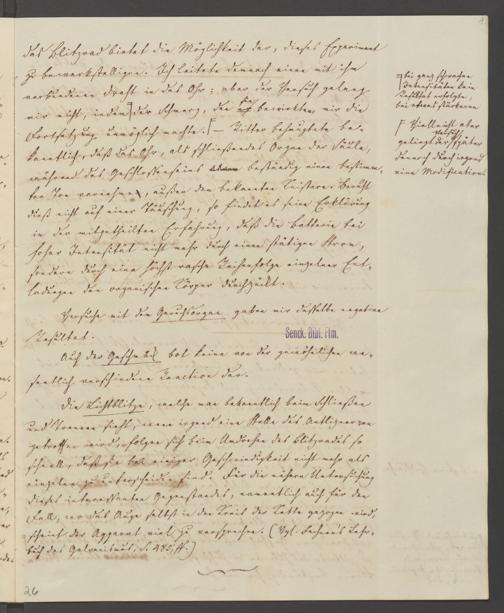 das Blitzrad bietet die Möglichkeit dar, dieses Experiment
zu bewerkstelligen. Ich leitete demnach einen mit ihm
verbundenen Draht in das Ohr; aber der Versuch gelang
mir nicht, indem der Schmerz, den er bewirkte, mir die
Fortsetzung unmöglich machte. – Ritter behauptete be-
kanntlich, daß das Ohr, als schließendes Organ der Säule,
während des Geschlossenseins beständig einen bestimm-
ten Ton vernehme, außer den bekannten . Beruht
dieß nicht auf einer Täuschung, so findet es seine Erklärung
in der mitgetheilten Erfahrung, daß die Batterie bei
hoher Intensität nicht mehr durch einen stätigen Strom,
sondern durch eine höchst rasche Reihenfolge einzelner Ent-
ladungen den organischen Körper durchzückt.
Versuche mit den Geruchsorganen gaben mir dasselbe negative
Resultat.
Auch der Geschmack bot keine von der gewöhnlichen we-
sentlich verschiedene Reaction dar.
Die Lichtblitze, welche man bekanntlich beim Schließen
und Trennen sieht, wenn irgend eine Stelle des Antlitzes
getroffen wird, erfolgen sich beim Umdrehen des Blitzrades so
schnell, daß sie bei einiger Geschwindigkeit nicht mehr als
einzelne zu unterscheiden sind. Für die nähere Untersuchung
dieses interessanten Gegenstandes, namentlich auch für den
Fall, wo das Auge selbst in den Kreis der Kette gezogen wird,
scheint der Apparat viel zu versprechen. (Vgl. Fechner's Lehr-
buch des Galvanismus, S. 485, ff.)
bei ganz schwachen
Intensitäten kein
Resultat erfolgte,
bei etwas stärkeren
Vielleicht aber
gelingt der Versuch später
dennoch durch irgend
eine Modification
Senck. Bibl. Ffm.
26